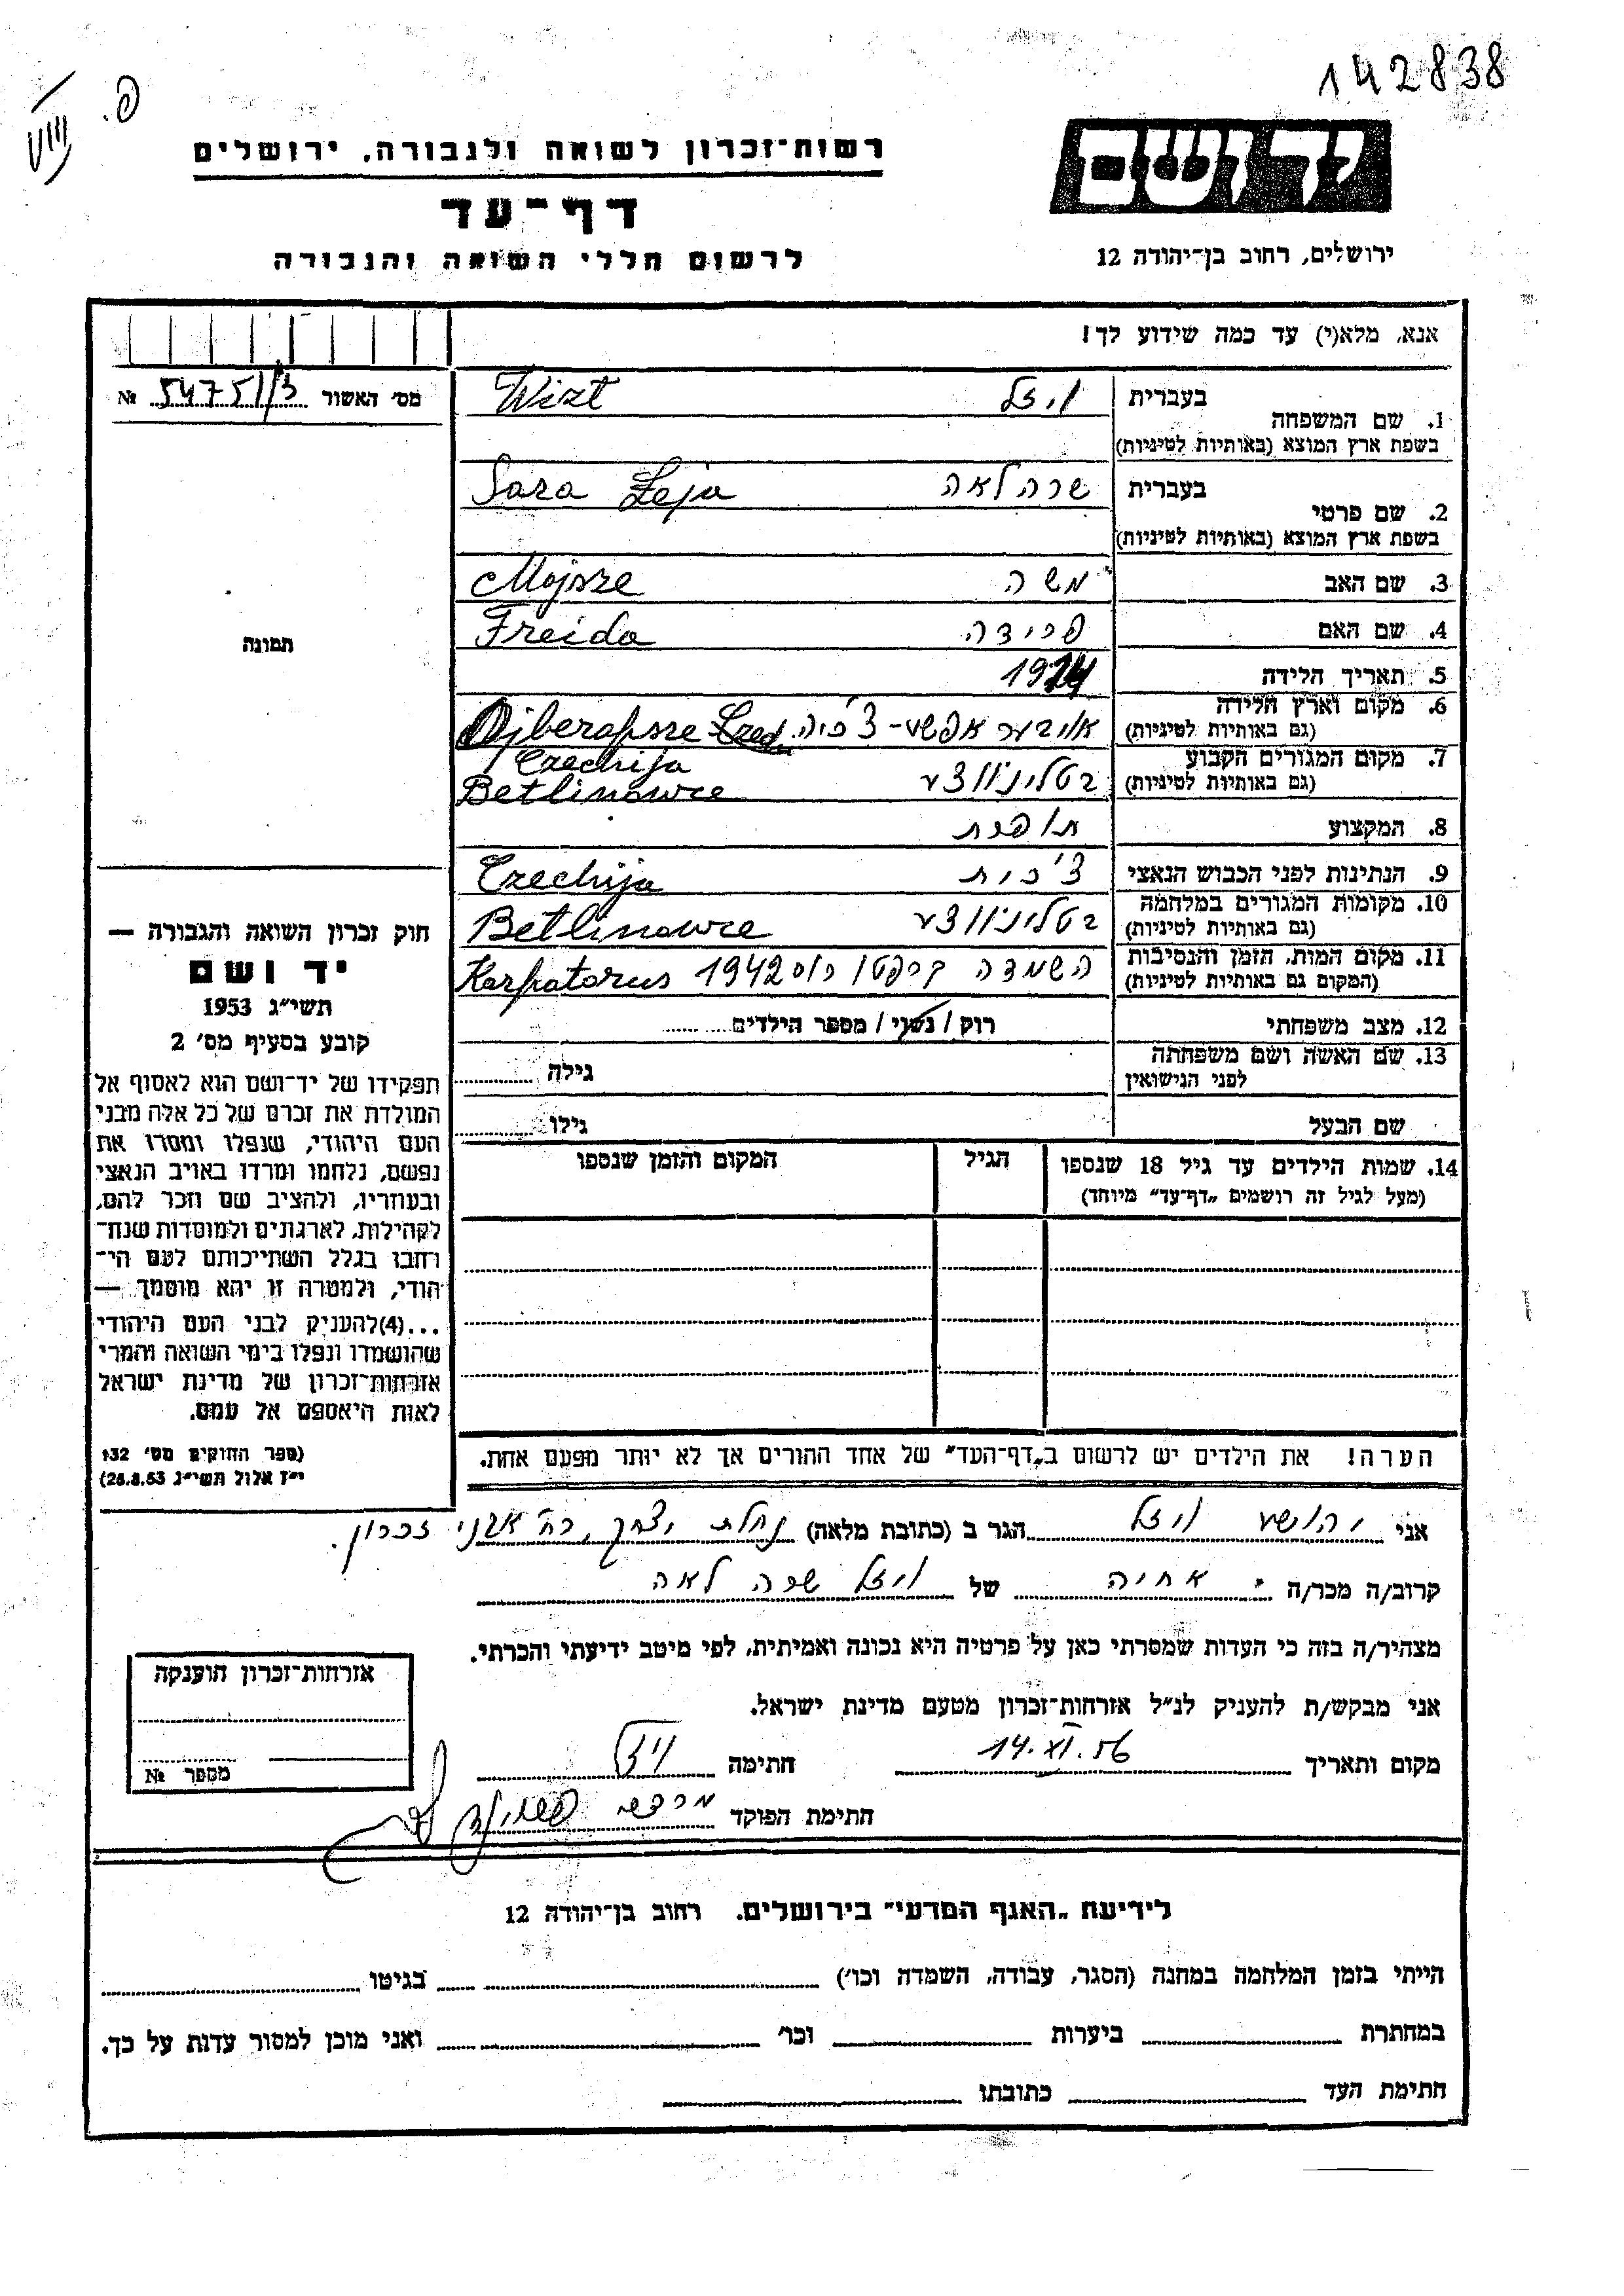 142838
פ. VIII
יד ושם
רשות־זכרון לשואה ולגבורה, ירושלים
דף־עד
לרשום חללי השואה והגבורה
ירושלים, רחוב בן־יהודה 12
אנא, מלא(י) עד כמה שידוע לך!
מס׳ האשור 54751/3 №
תמונה
1. שם המשפחה בעברית ויזל Wizt
בשפת ארץ המוצא (באותיות לטיניות)
2. שם פרטי בעברית שרה לאה Sara Leja
בשפת ארץ המוצא (באותיות לטיניות)
3. שם האב משה Mojsze
4. שם האם פרידה Freida
5. תאריך הלידה 1924
6. מקום וארץ הלידה אויבער אפשע - צ׳כיה Ojberapsze
(גם באותיות לטיניות) Czechija
7. מקום המגורים הקבוע בטלינווצע Betlinowce
(גם באותיות לטיניות)
8. המקצוע תופרת
9. הנתינות לפני הכבוש הנאצי צ׳כית Czechija
10. מקומות המגורים במלחמה בטלינווצע Betlinowce
(גם באותיות לטיניות)
11. מקום המות, הזמן והנסיבות השמדה קרפטו רוס 1942 Karpatorus
(המקום גם באותיות לטיניות)
12. מצב משפחתי רוק / נשוי / מספר הילדים
13. שם האשה ושם משפחתה גילה
לפני הנישואין
שם הבעל גילו
14. שמות הילדים עד גיל 18 שנספו הגיל המקום והזמן שנספו
(מעל לגיל זה רושמים „דף־עד״ מיוחד)
חוק זכרון השואה והגבורה —
יד ושם
תשי״ג 1953
קובע בסעיף מס׳ 2
תפקידו של יד־ושם הוא לאסוף אל
המולדת את זכרם של כל אלה מבני
העם היהודי, שנפלו ומסרו את
נפשם, נלחמו ומרדו באויב הנאצי
ובעוזריו, ולהציב שם וזכר להם,
לקהילות, לארגונים ולמוסדות שנח־
רבו בגלל השתייכותם לעם הי־
הודי, ולמטרה זו יהא מוסמך —
...(4)להעניק לבני העם היהודי
שהושמדו ונפלו בימי השואה והמרי
אזרחות־זכרון של מדינת ישראל
לאות היאספם אל עמם.
(ספר החוקים מס׳ 132
י״ז אלול תשי״ג 28.8.53)
הערה! את הילדים יש לרשום ב„דף־העד״ של אחד ההורים אך לא יותר מפעם אחת.
אני יהושע ויזל הגר ב (כתובת מלאה) נחלת יצחק, רח׳ אבני זכרון.
קרוב/ה מכר/ה אחיה של ויזל שרה לאה
מצהיר/ה בזה כי העדות שמסרתי כאן על פרטיה היא נכונה ואמיתית, לפי מיטב ידיעתי והכרתי.
אני מבקש/ת להעניק לנ״ל אזרחות־זכרון מטעם מדינת ישראל.
מקום ותאריך 14.XI.56 חתימה ויזל
חתימת הפוקד מרדכי
אזרחות־זכרון הוענקה
מספר №
לידיעת „האגף המדעי״ בירושלים. רחוב בן־יהודה 12
הייתי בזמן המלחמה במחנה (הסגר, עבודה, השמדה וכו׳) בגיטו
במחתרת ביערות וכו׳ ואני מוכן למסור עדות על כך.
חתימת העד כתובתו